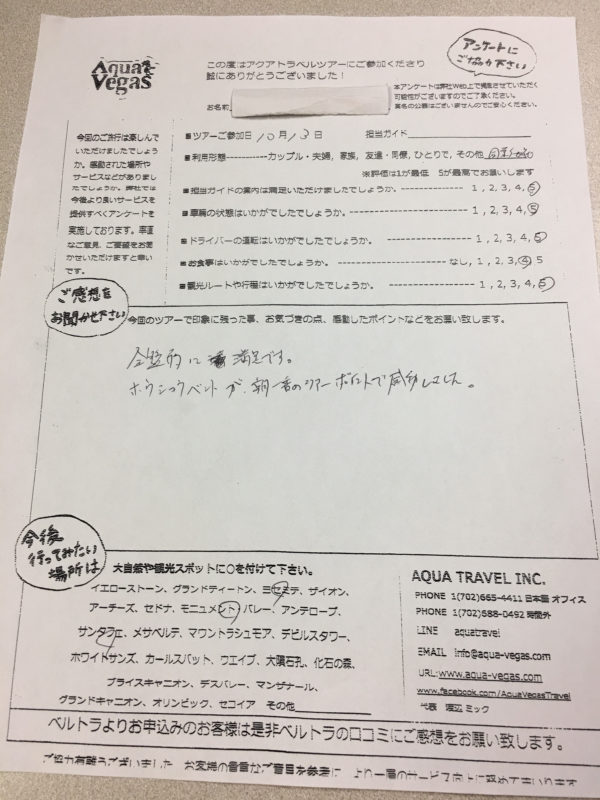 Aqua
Vegas
この度はアクアトラベルツアーにご参加くださり
誠にありがとうございました！
アンケートに
ご協力下さい
本アンケートは弊社Web上で掲載させていただく
可能性がございますのでご了承ください。
実名の公開はございませんのでご安心ください。
お名前
今回のご旅行は楽しんで
いただけましたでしょう
か。感動された場所や
サービスなどがありまし
たでしょうか。弊社では
今後より良いサービスを
提供すべくアンケートを
実施しております。率直
なご意見、ご要望をお聞
かせいただけますと幸い
です。
■ツアーご参加日 10月13日 担当ガイド
■利用形態-----------カップル・夫婦, 家族, 友達・同僚, ひとりで, その他
※評価は1が最低 5が最高でお願いします
■担当ガイドの案内は満足いただけましたでしょうか。 1, 2, 3, 4, 5
■車輌の状態はいかがでしたでしょうか。 1, 2, 3, 4, 5
■ドライバーの運転はいかがでしたでしょうか。 1, 2, 3, 4, 5
■お食事はいかがでしたでしょうか。 なし, 1, 2, 3, 4, 5
■観光ルートや行程はいかがでしたでしょうか。 1, 2, 3, 4, 5
ご感想を
お聞かせ下さい
今回のツアーで印象に残った事、お気づきの点、感動したポイントなどをお願い致します。
全整的に 満足です。
ホウショウベントが、朝一番のツアーポイントで感動しました。
今後
行ってみたい
場所は
大自然や観光スポットに○を付けて下さい。
イエローストーン、グランドティートン、ヨセミテ、ザイオン、
アーチーズ、セドナ、モニュメントバレー、アンテロープ、
サンタフェ、メサベルデ、マウントラシュモア、デビルスタワー、
ホワイトサンズ、カールスバット、ウエイブ、大隕石孔、化石の森、
ブライスキャニオン、デスバレー、マンザナール、
グランドキャニオン、オリンピック、セコイア その他
AQUA TRAVEL INC.
PHONE 1(702)665-4411 日本語 オフィス
PHONE 1(702)588-0492 時間外
LINE aquatravel
EMAIL info@aqua-vegas.com
URL:www.aqua-vegas.com
www.facebook.com/AquaVegasTravel
代表 渡辺 ミック
ベルトラよりお申込みのお客様は是非ベルトラの口コミにご感想をお願い致します。
ご協力有難うございました お客様の貴重なご意見を参考に より一層のサービス向上に努めてまいります